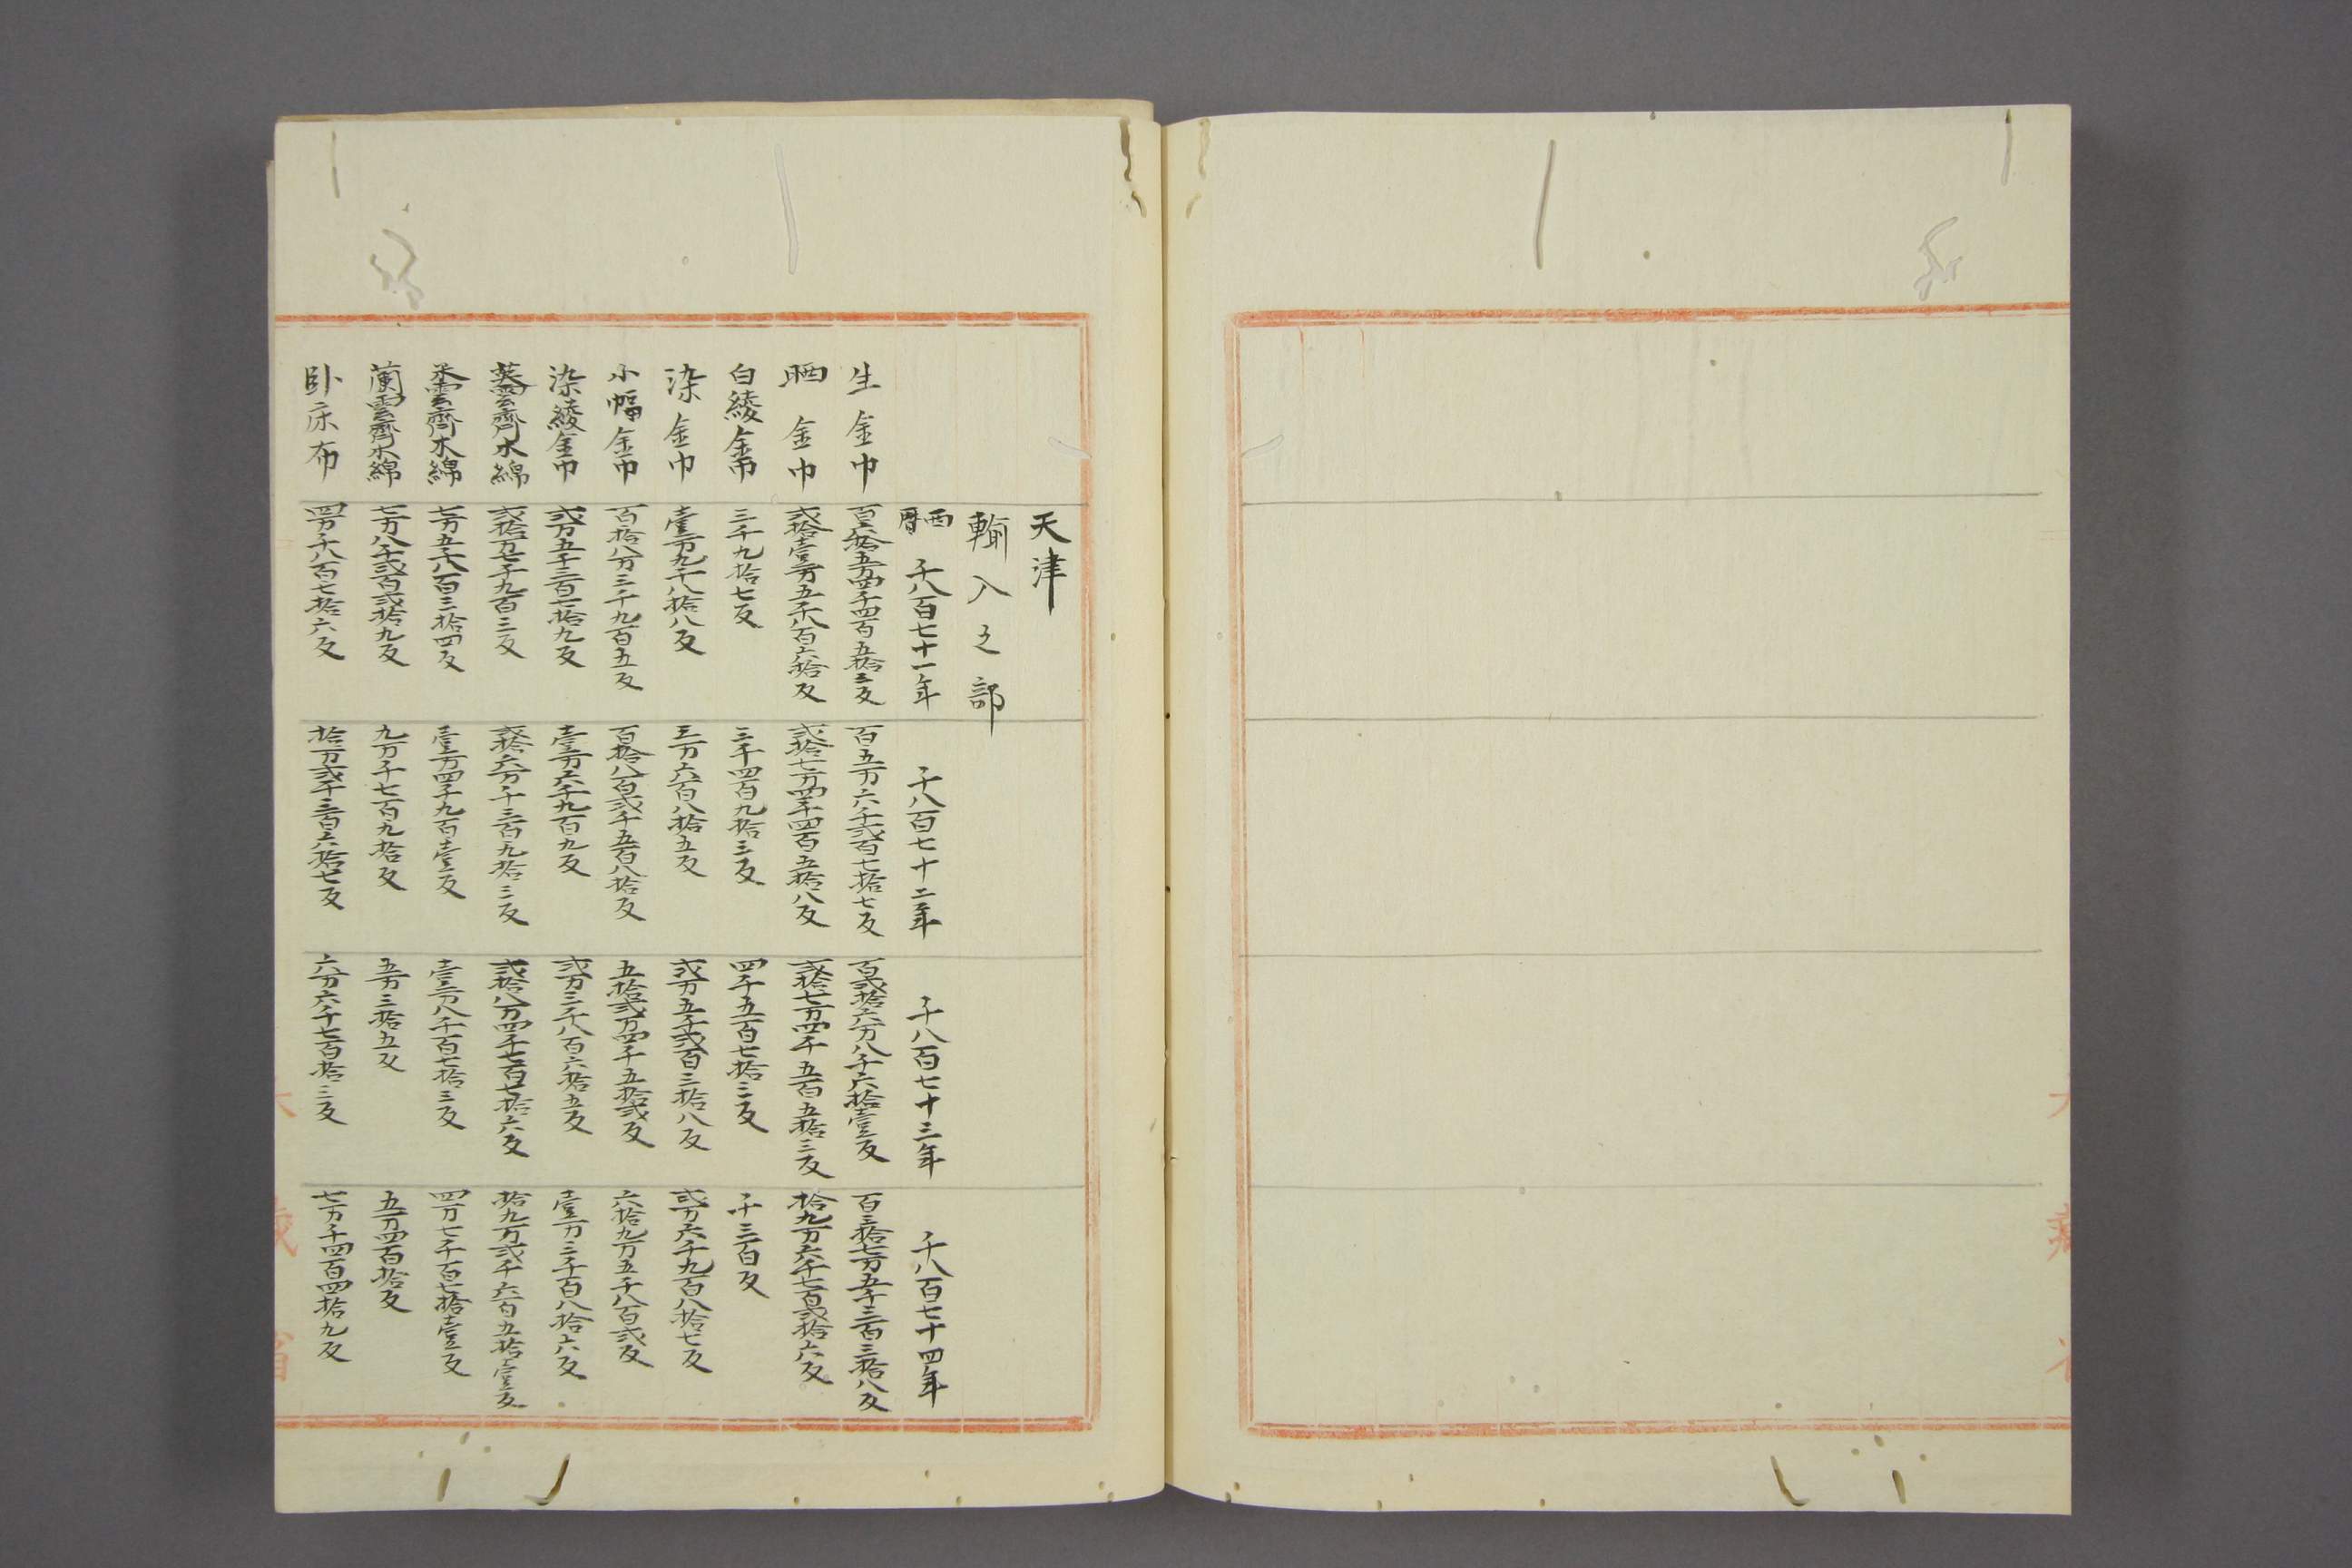 天津
輸入之部
西暦 千八百七十一年 千八百七十二年 千八百七十三年 千八百七十四年
生金巾 百弐拾五万四千四百五拾三反 百五万六千弐百七拾七反 百弐拾六万八千六拾壹反 百三拾七万五千三百三拾八反
晒金巾 弐拾壹万五千八百六拾反 弐拾七万四千四百五拾八反 弐拾七万四千五百五拾三反 拾九万六千七百弐拾六反
白綾金巾 三千九拾七反 三千四百九拾三反 四千五百七拾三反 千三百反
染金巾 壹万九千八拾八反 三万六百八拾五反 弐万五千弐百三拾八反 弐万六千九百八拾七反
小幅金巾 百拾八万三千九百五反 百拾八百弐千五百八拾反 五拾弐万四千五拾弐反 六拾九万五千八百弐反
染綾金巾 弐万五千三百一拾九反 壹万六千九百九反 弐万三千八百六拾五反 壹万三千百八拾六反
英雲齊木綿 弐拾万七千九百三反 弐拾六万千三百九拾三反 弐拾八万四千七百七拾六反 拾九万弐千六百五拾壹反
米雲齊木綿 七万五千八百三拾四反 壹万四千九百壹反 壹万八千百七拾三反 四万七千百七拾壹反
蘭雲齊木綿 七万八千弐百弐拾九反 九万千七百九拾反 五万三拾五反 五万四百拾反
卧床布 四万千八百七拾六反 拾万弐千三百六拾七反 六万六千七百拾三反 七万千四百四拾九反